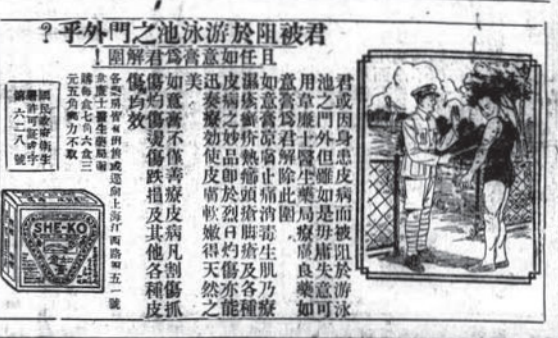 君被阻於游泳池之門外乎？
且任如意膏爲君解圍！
君或因身患皮病而被阻於游泳
池之門外但雖如是毋庸失意可
用韋廉士醫生藥局療膚良藥如
意膏爲君解除此圍
如意膏凉爽止痛消毒生肌乃療
濕疹癬疥熱痱頭瘡脚瘡及各種
皮病之妙品卽於烈日灼傷亦能
迅奏療効使皮膚軟嫩得天然之
美
如意膏不僅善療皮病凡割傷抓
傷灼傷燙傷跌損及其他各種皮
傷均效
各藥房皆有出售或逕向上海江西路四五一號
韋廉士醫生藥局函
購每盒七角六盒三
元五角郵力不取
國民政府衛生
署許可証成字
第六二八號
SHE-KO